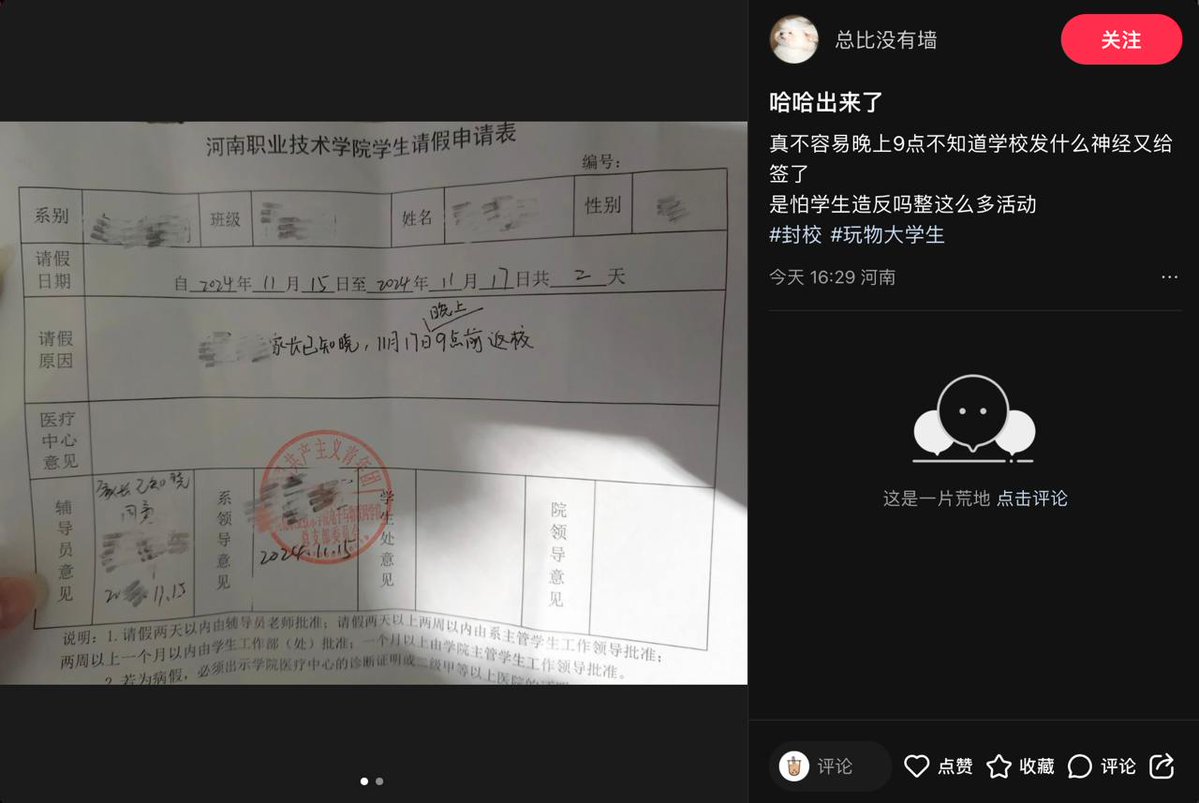 河南职业技术学院学生请假申请表
编号：
系别
班级
姓名
性别
请假
日期
自2024年11月15日至2024年11月17日共2天
请假
原因
晚上
家长已知晓，11月17日9点前返校
医疗
中心
意见
辅导员意见
家长已知晓
同意
11.15
系领导意见
共产主义青年团
总支部委员会
2024.11.15
学生处意见
院领导意见
说明：1.请假两天以内由辅导员老师批准；请假两天以上两周以内由系主管学生工作领导批准；
两周以上一个月以内由学生工作部（处）批准；一个月以上由学院主管学生工作领导批准。
2.若为病假，必须出示学院医疗中心的诊断证明或二级甲等以上医院的
总比没有墙
关注
哈哈出来了
真不容易晚上9点不知道学校发什么神经又给
签了
是怕学生造反吗整这么多活动
#封校 #玩物大学生
今天 16:29 河南
这是一片荒地 点击评论
评论
点赞
收藏
评论